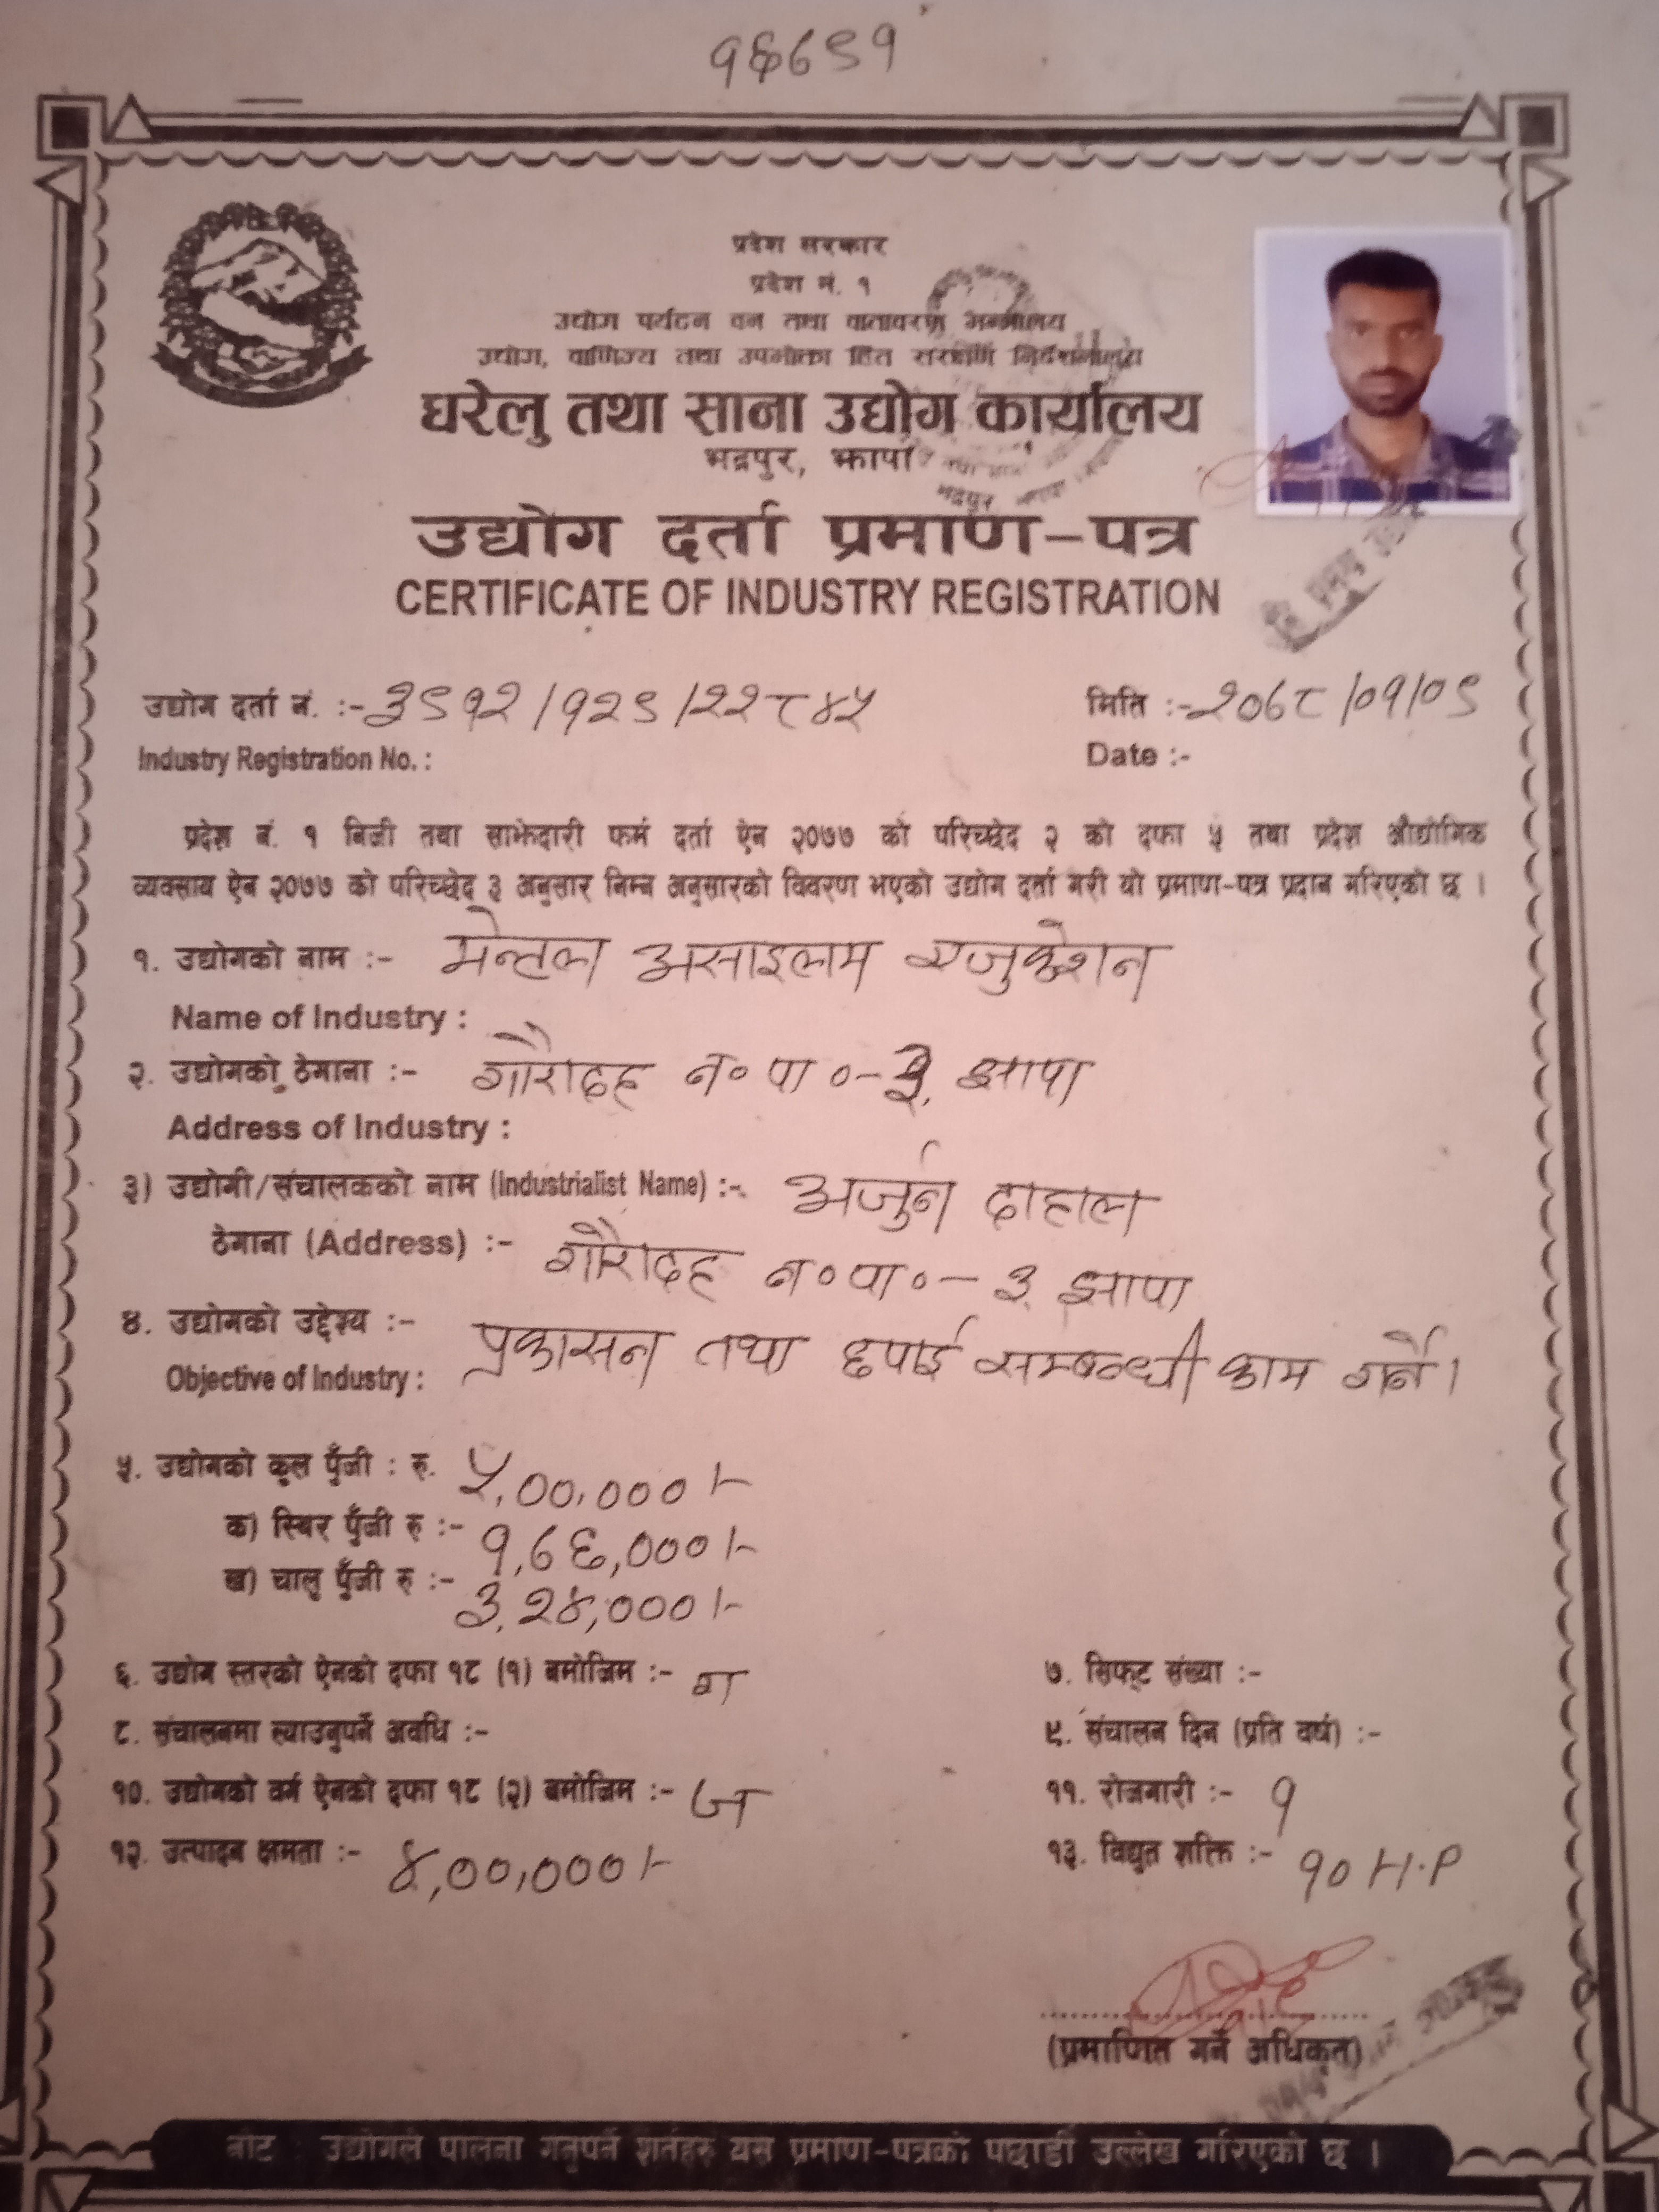 १६७९१
प्रदेश सरकार
प्रदेश नं. १
उद्योग पर्यटन वन तथा वातावरण मन्त्रालय
उद्योग, वाणिज्य तथा उपभोक्ता हित संरक्षण निर्देशनालय
घरेलु तथा साना उद्योग कार्यालय
भद्रपुर, झापा
भद्रपुर
उद्योग दर्ता प्रमाण-पत्र
CERTIFICATE OF INDUSTRY REGISTRATION
उद्योग दर्ता नं. :- ३९१२/१२९/२२८४५ मिति :- २०७८/०१/०९
Industry Registration No. : Date :-
प्रदेश नं. १ निजी तथा साझेदारी फर्म दर्ता ऐन २०७७ को परिच्छेद २ को दफा ५ तथा प्रदेश औद्योगिक
व्यवसाय ऐन २०७७ को परिच्छेद ३ अनुसार निम्न अनुसारको विवरण भएको उद्योग दर्ता गरी यो प्रमाण-पत्र प्रदान गरिएको छ ।
१. उद्योगको नाम :- मेन्टल असाइलम एजुकेशन
Name of Industry :
२. उद्योगको ठेगाना :- गौरादह न०पा०-३, झापा
Address of Industry :
३) उद्योगी/संचालकको नाम (Industrialist Name) :- अर्जुन दाहाल
ठेगाना (Address) :- गौरादह न०पा०-३ झापा
४. उद्योगको उद्देश्य :- प्रकासन तथा छपाई सम्बन्धी काम गर्ने।
Objective of Industry :
५. उद्योगको कूल पुँजी : रु. ५,००,०००।-
क) स्थिर पुँजी रु :- १,७६,०००।-
ख) चालु पुँजी रु :- ३,२४,०००।-
६. उद्योग स्तरको ऐनको दफा १८ (१) बमोजिम :- ग ७. सिफ्ट संख्या :-
८. संचालनमा ल्याउनुपर्ने अवधि :- ९. संचालन दिन (प्रति वर्ष) :-
१०. उद्योगको वर्ग ऐनको दफा १८ (२) बमोजिम :- ज ११. रोजगारी :- १
१२. उत्पादन क्षमता :- ४,००,०००।- १३. विद्युत शक्ति :- १० H.P
(प्रमाणित गर्ने अधिकृत)
नोट : उद्योगले पालना गनुपर्ने शर्तहरु यस प्रमाण-पत्रको पछाडी उल्लेख गरिएको छ ।